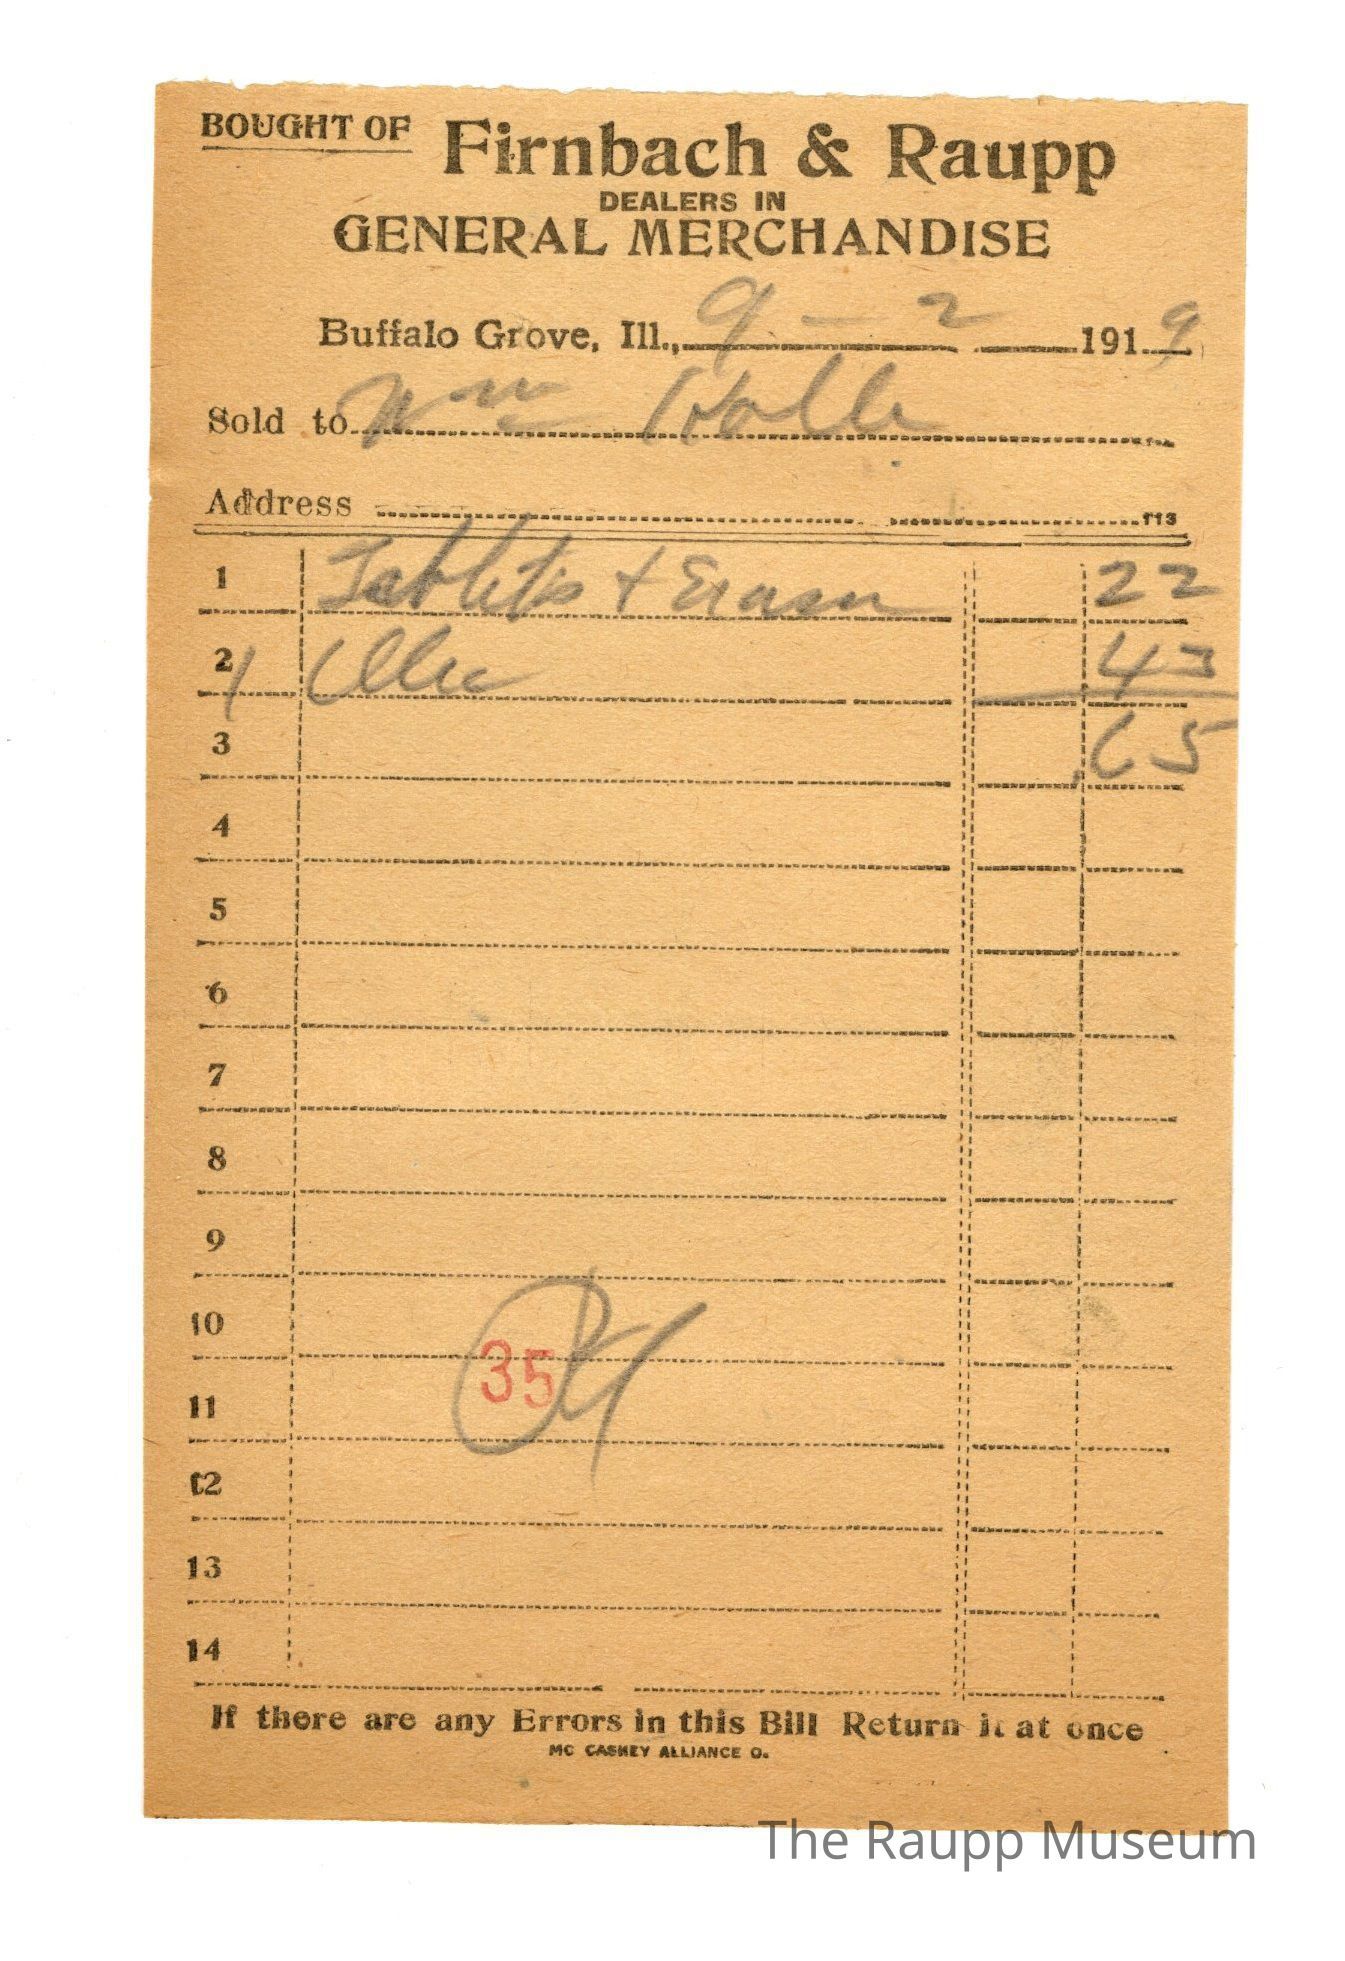 BOUGHT OF Firnbach & Raupp
DEALERS IN
GENERAL MERCHANDISE
Buffalo Grove, Ill., 9 - 2 1919
Sold to Wm
Address 113
1 Tablets + Eraser 22
2 1 43
3 .65
4
5
6
7
8
9
10
35
11
12
13
14
If there are any Errors in this Bill Return it at once
MC CASKEY ALLIANCE O.
The Raupp Museum